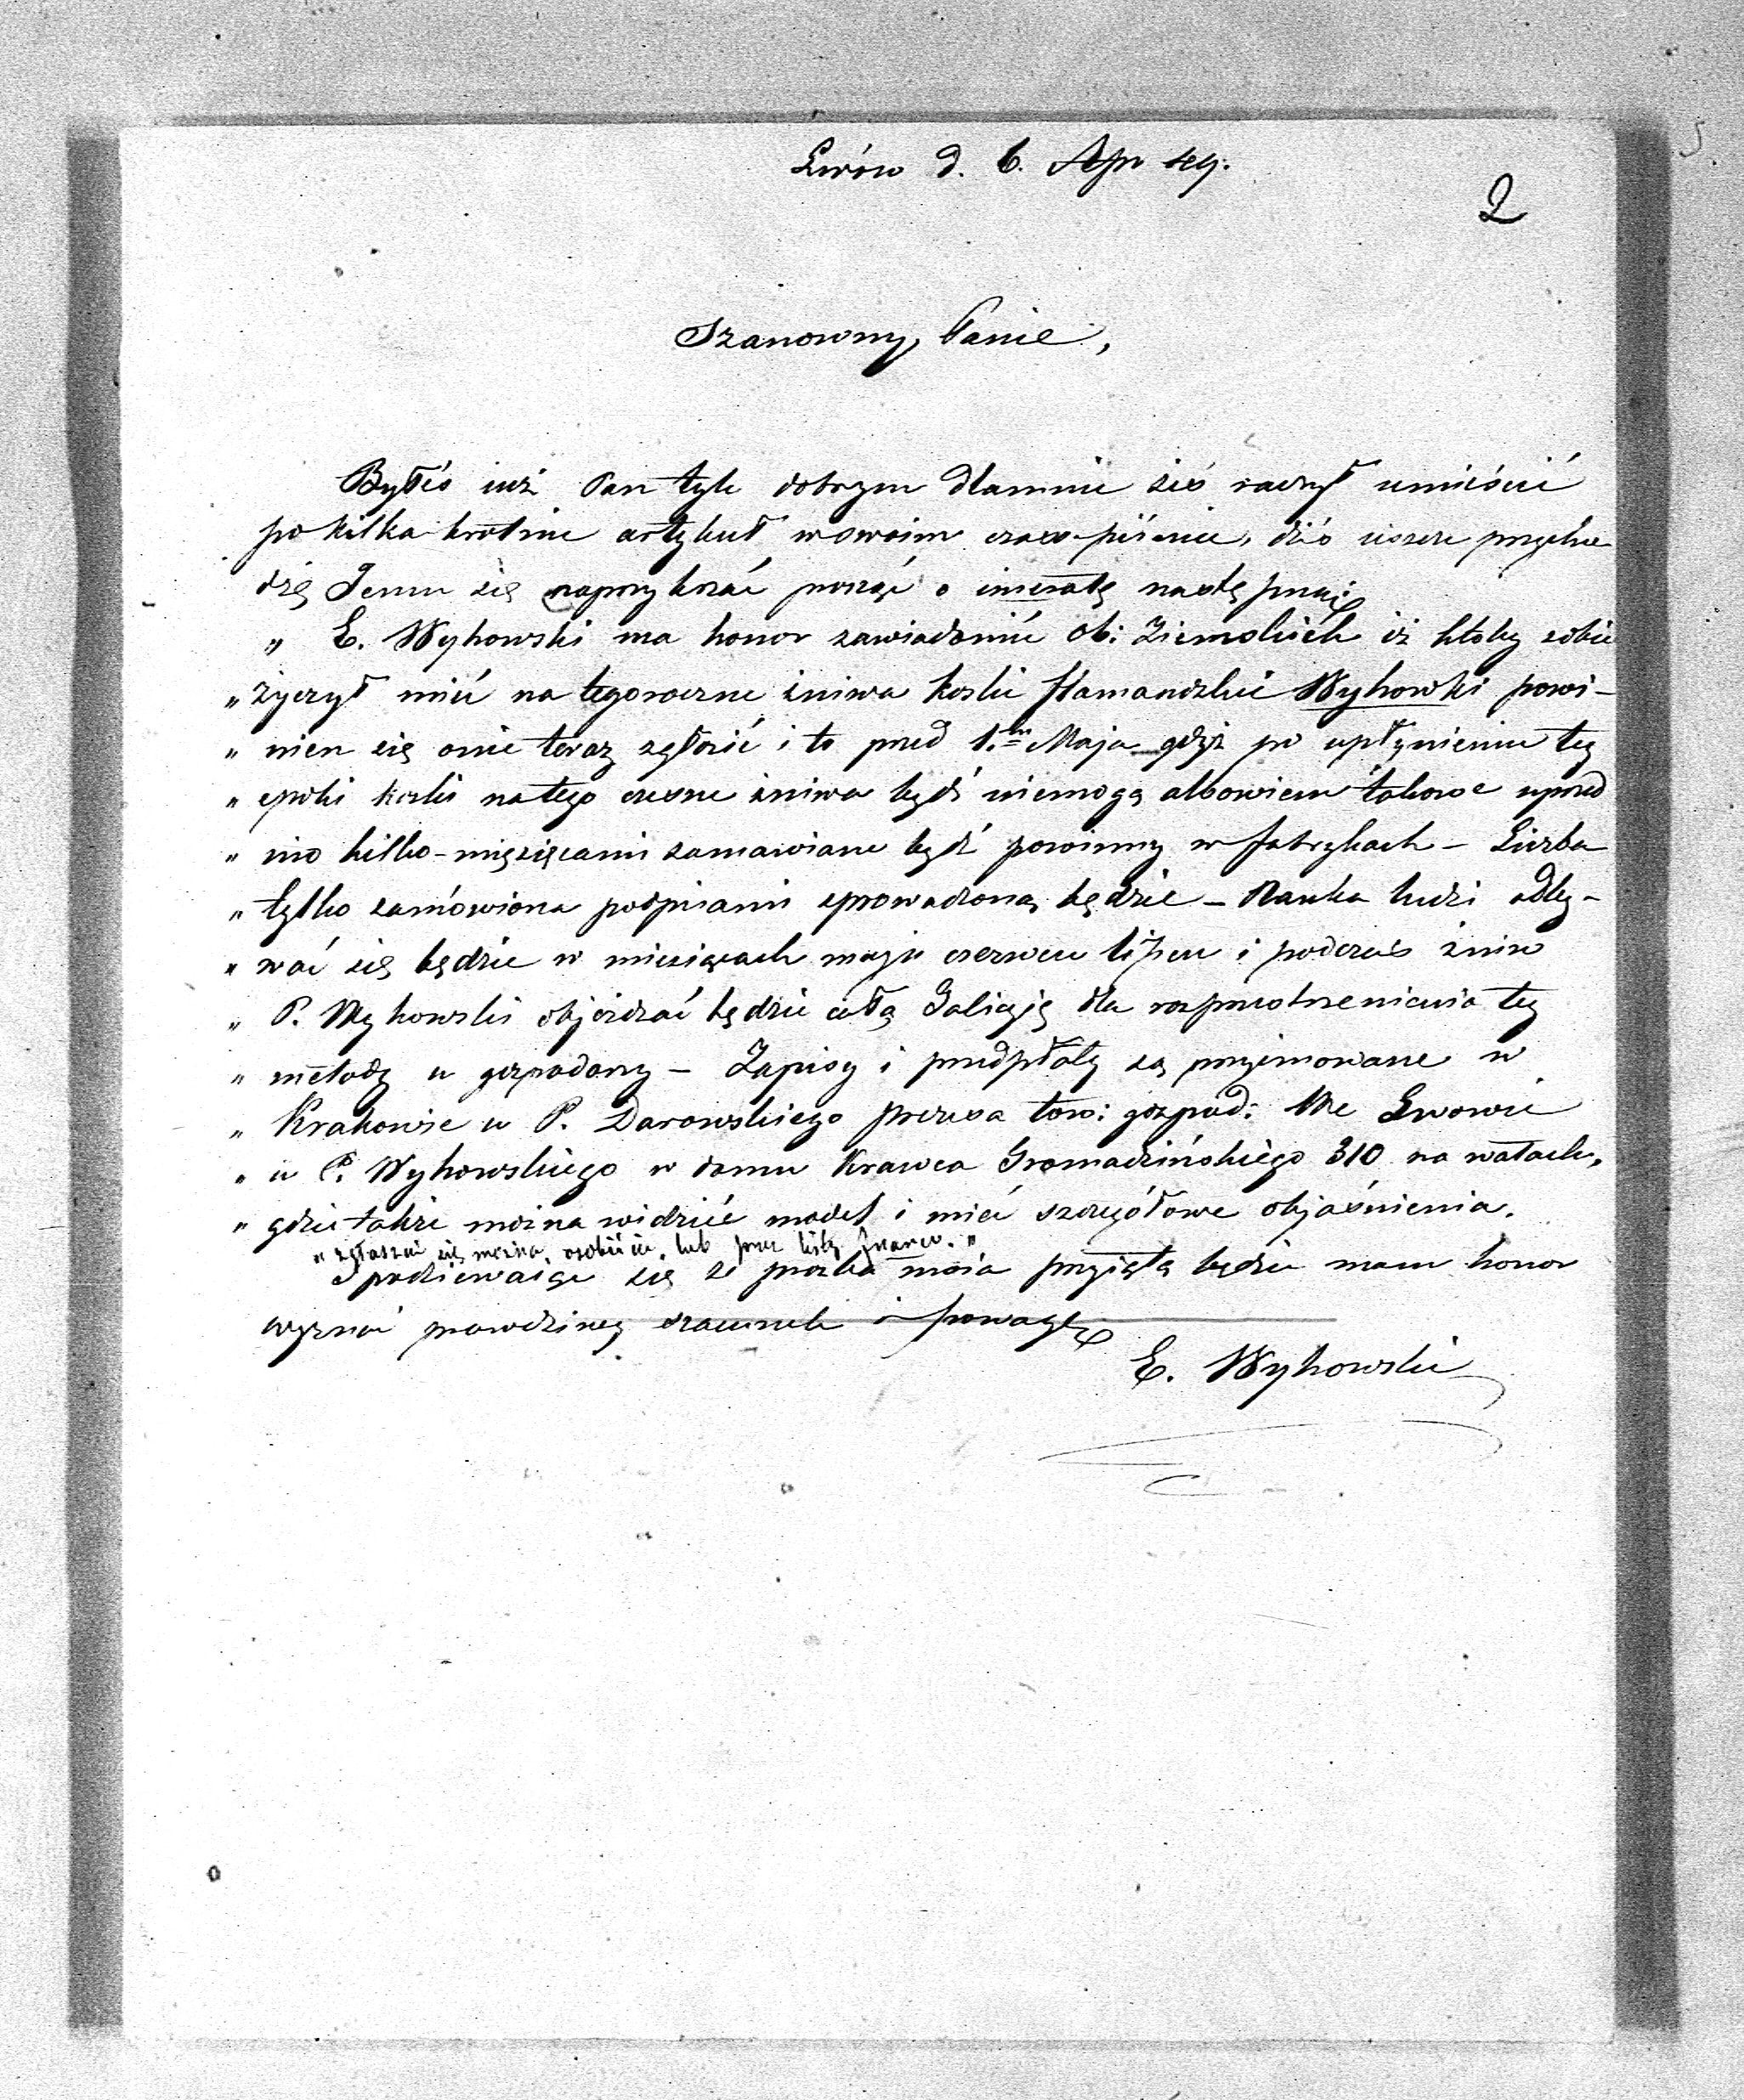 Lwów d. 6. Apr 49.
2
Szanowny Panie,
Byłeś iuż Pan tyle dobrym dlamnie żeś raczył umieścić
po kilka-krotnie artykuł w swoim czasopiśmie, dziś ieszcze przycho
dzę Jemu się naprzykrzać prosząc o inseratę następną:
„ E. Wyhowski ma honor zawiadomić Ob: Ziemskich iż ktoby sobie
„ życzył mieć na tegoroczne żniwa koski flamandzkie Wyhowski powi-
„ nien się o nie teraz zgłosić i to przed 1. Maja gdyż po upłynieniu tey
„ epoki koski na tego czesne żniwa bydź niemogą albowiem takowe uprzed
„ nio kilko-mięsięcami zamawiane bydź powinny w fabrykach - Liczba
„ tylko zamówiona podpisami sprowadzoną będzie - Nauka ludzi odby-
„ wać się będzie w miesiącach maju czerwcu lipcu i podczas żniw
„ P. Wyhowski objeżdżać będzie całą Galicję dla rozprzestrzenienia tey
„ metody u gospodarzy - Zapisy i przedpłaty są przyjmowane w
„ Krakowie u P. Darowskiego prezesa tow: gospod: We Lwowie
„ u P. Wyhowskiego w domu Krawca Gromadzińskiego 310 na wałach,
„ gdzie także można widzieć model i mieć szczegółowe objaśnienia.
„ zgłaszać się można, osobiście, lub przez listy franco. "
Spodziewaiąc się że prozba moia przyięta będzie mam honor
wyznać prawdziwy szacunek i powagę
E. Wyhowski